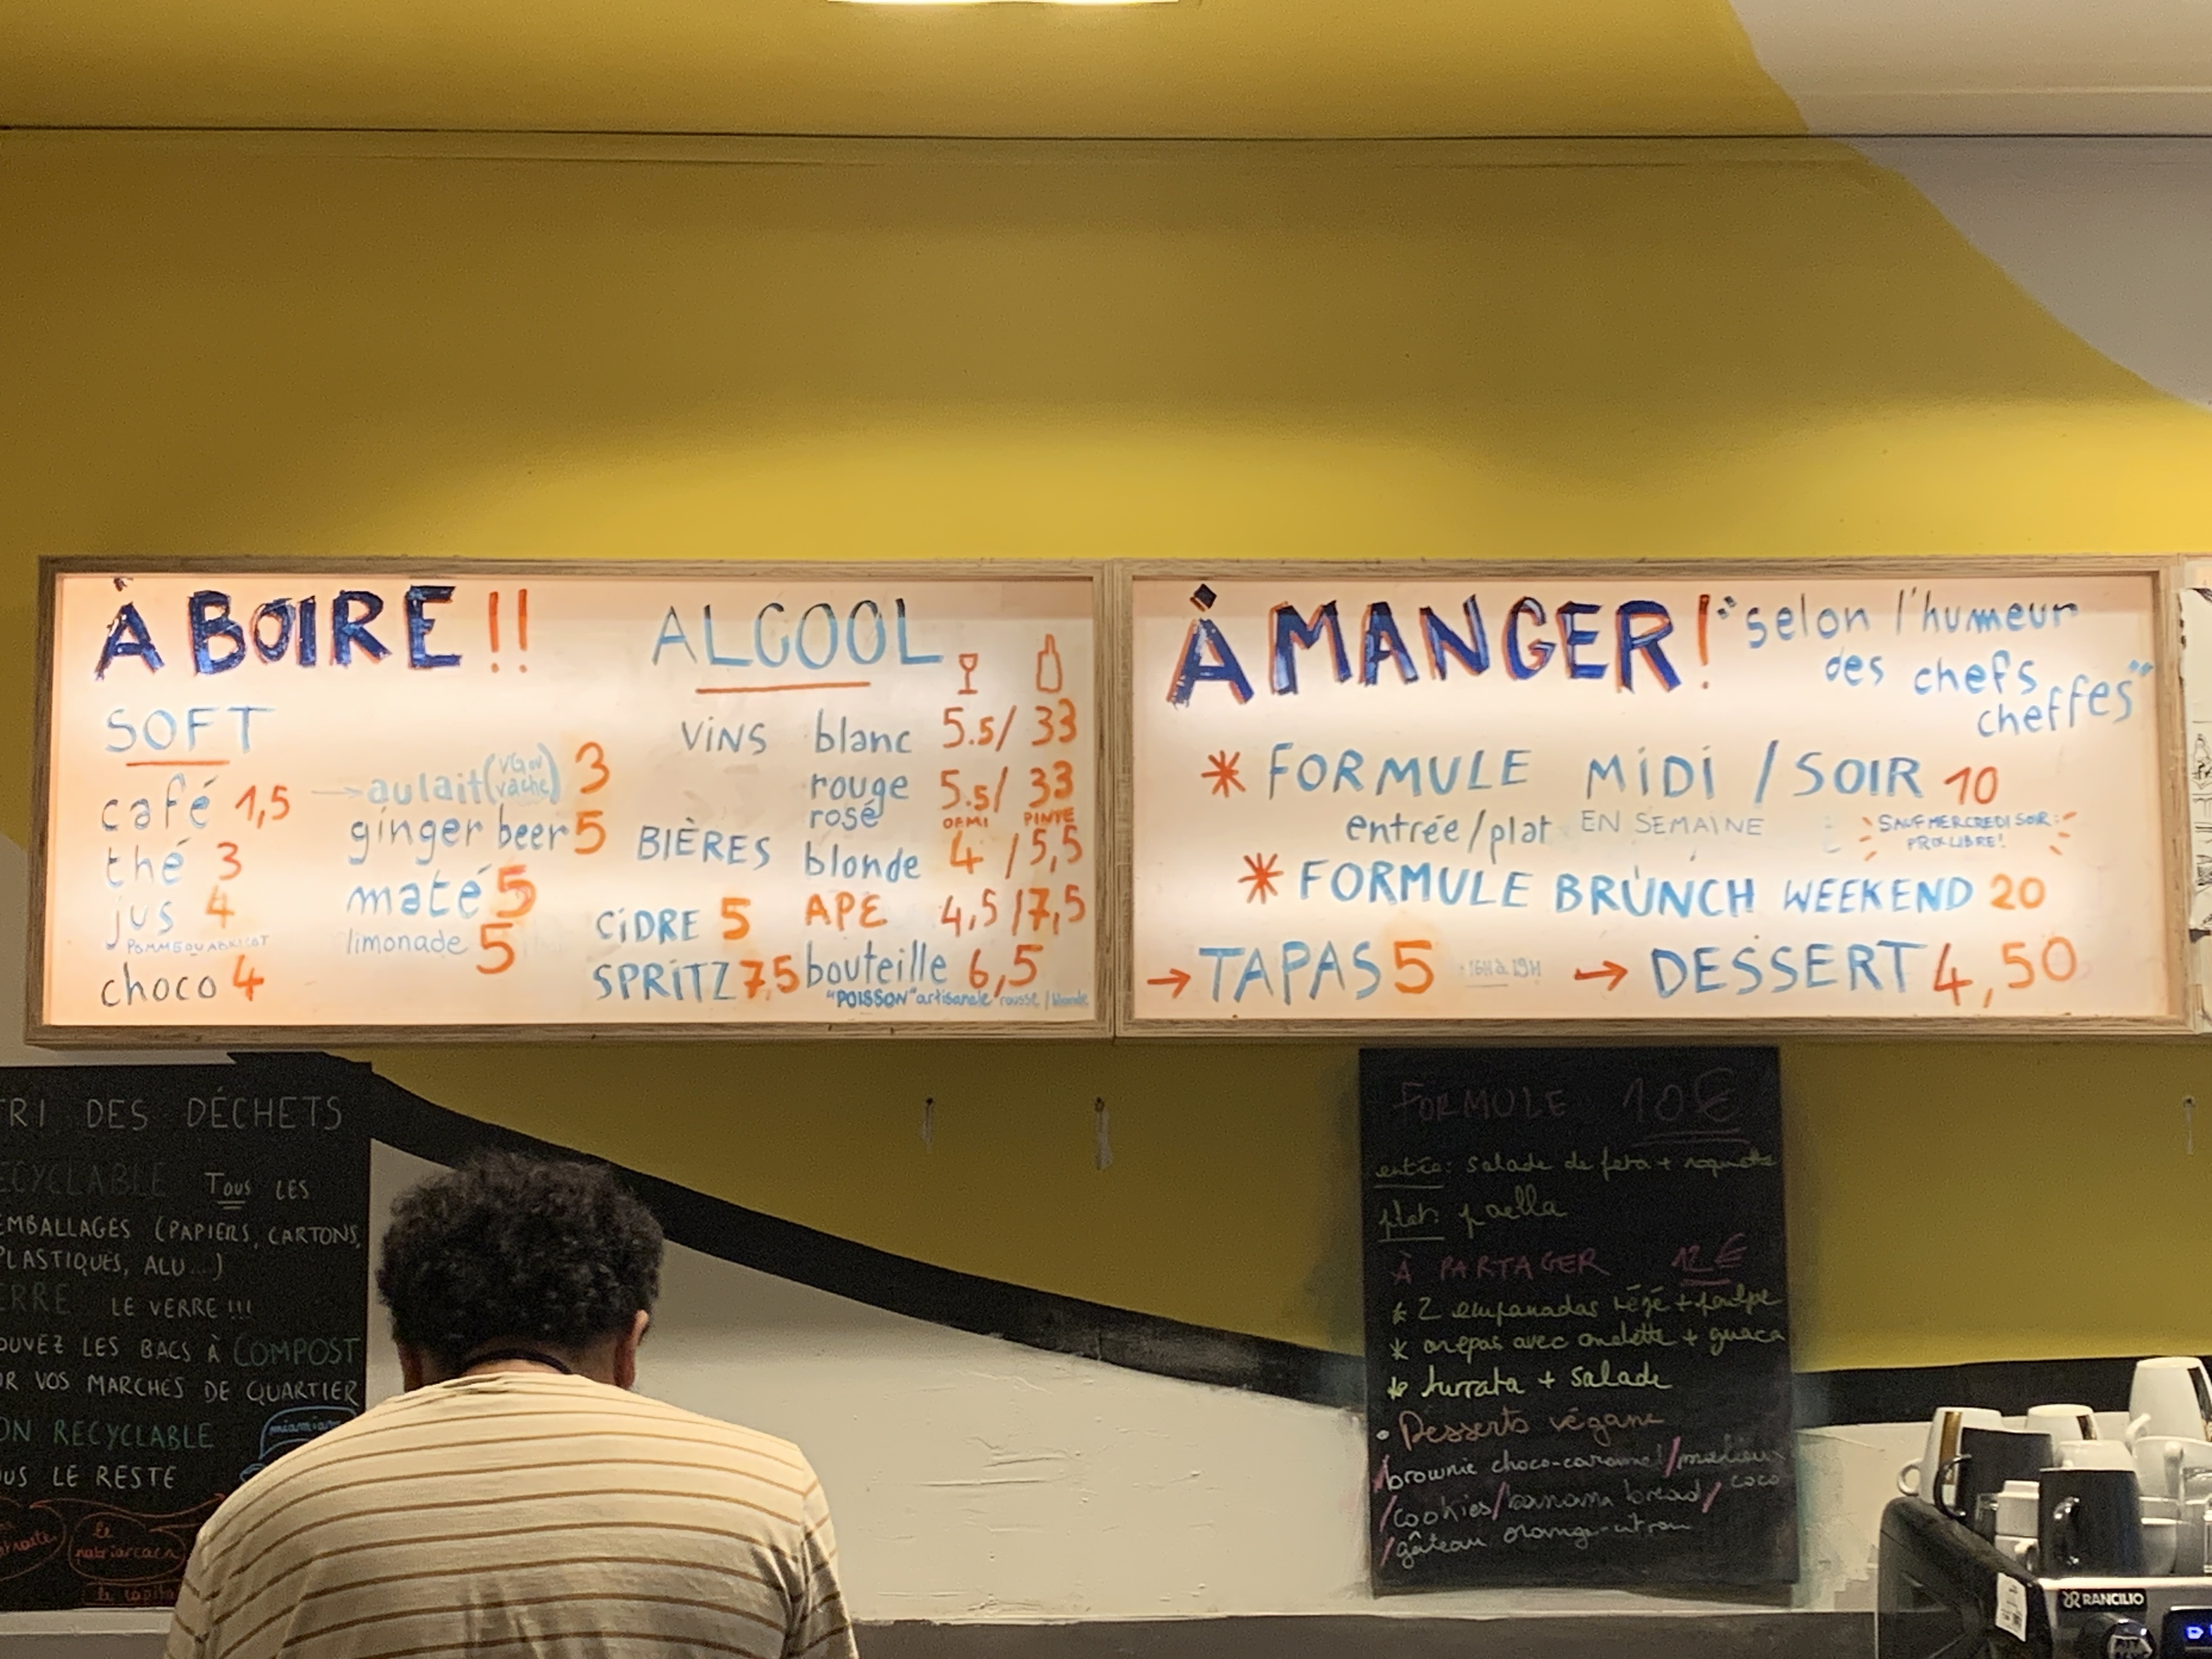 À BOIRE !!
SOFT
café 1,5
→ au lait (VG ou vache) 3
thé 3
jus 4
POMME OU ABRICOT
choco 4
ginger beer 5
maté 5
limonade 5
ALCOOL
VINS blanc 5.5 / 33
rouge 5.5 / 33
rosé
DEMI PINTE
BIÈRES blonde 4 / 5,5
APE 4,5 / 7,5
bouteille 6,5
"POISSON" artisanale rousse / blonde
CIDRE 5
SPRITZ 7,5
À MANGER !
"selon l'humeur
des chefs
cheffes"
* FORMULE MIDI / SOIR 10
entrée/plat EN SEMAINE
SAUF MERCREDI SOIR :
PRIX LIBRE !
* FORMULE BRUNCH WEEKEND 20
→ TAPAS 5 16H à 19H → DESSERT 4,50
TRI DES DÉCHETS
ECYCLABLE TOUS LES
EMBALLAGES (PAPIERS, CARTONS,
PLASTIQUES, ALU...)
ERRE LE VERRE !!!
OUVEZ LES BACS À COMPOST
OR VOS MARCHÉS DE QUARTIER
ON RECYCLABLE
miamiam
OUS LE RESTE
le
patriarcat
FORMULE 10€
entrée: salade de feta + roquette
plat: paella
À PARTAGER 12€
* 2 empanadas végé + poulpe
* arepas avec omelette + guaca
* burrata + salade
• Desserts végane
/brownie choco-caramel/moelleux
coco
/cookies/banana bread/
/gâteau orange-citron
RANCILIO